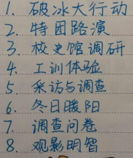 1. 破冰大行动
2. 特团路演
3. 校史馆调研
4. 工训体验
5. 采访与调查
6. 冬日暖阳
7. 调查问卷
8. 观影明智